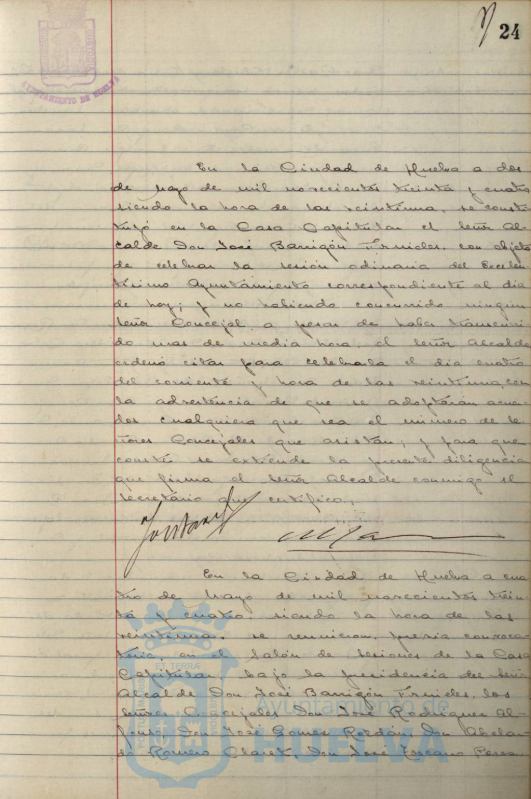 24
AYUNTAMIENTO DE HUELVA
En la Ciudad de Huelva a dos
de Mayo de mil novecientos treinta y cuatro
siendo la hora de las veintiuna, se consti-
tuyó en la Casa Capitular el Señor Al-
calde Don José Barrigón Fornieles, con objeto
de celebrar la sesión ordinaria del Excelen-
tísimo Ayuntamiento correspondiente al dia
de hoy; y no habiendo concurrido ningun
Señor Concejal, a pesar de haber transcurri-
do mas de media hora, el Señor Alcalde
ordenó citar para celebrarla el dia cuatro
del corriente y hora de las veintiuna, con
la advertencia de que se adoptarán acuer-
dos cualquiera que sea el número de Se-
ñores Concejales que asistan; y para que
conste se extiende la presente diligencia
que firma el Señor Alcalde conmigo el
Secretario que certifico.
En la Ciudad de Huelva a cua-
tro de Mayo de mil novecientos trein-
ta y cuatro, siendo la hora de las
veintiuna, se reunieron, previa convoca-
toria, en el Salón de Sesiones de la Casa
Capitular, bajo la presidencia del Señor
Alcalde Don José Barrigón Fornieles, los
Señores Concejales Don José Rodríguez Al-
fonso, Don José Gomez Roldán, Don Abelar-
do Romero Claret, Don José Toscano Perez
Ayuntamiento de
HUELVA